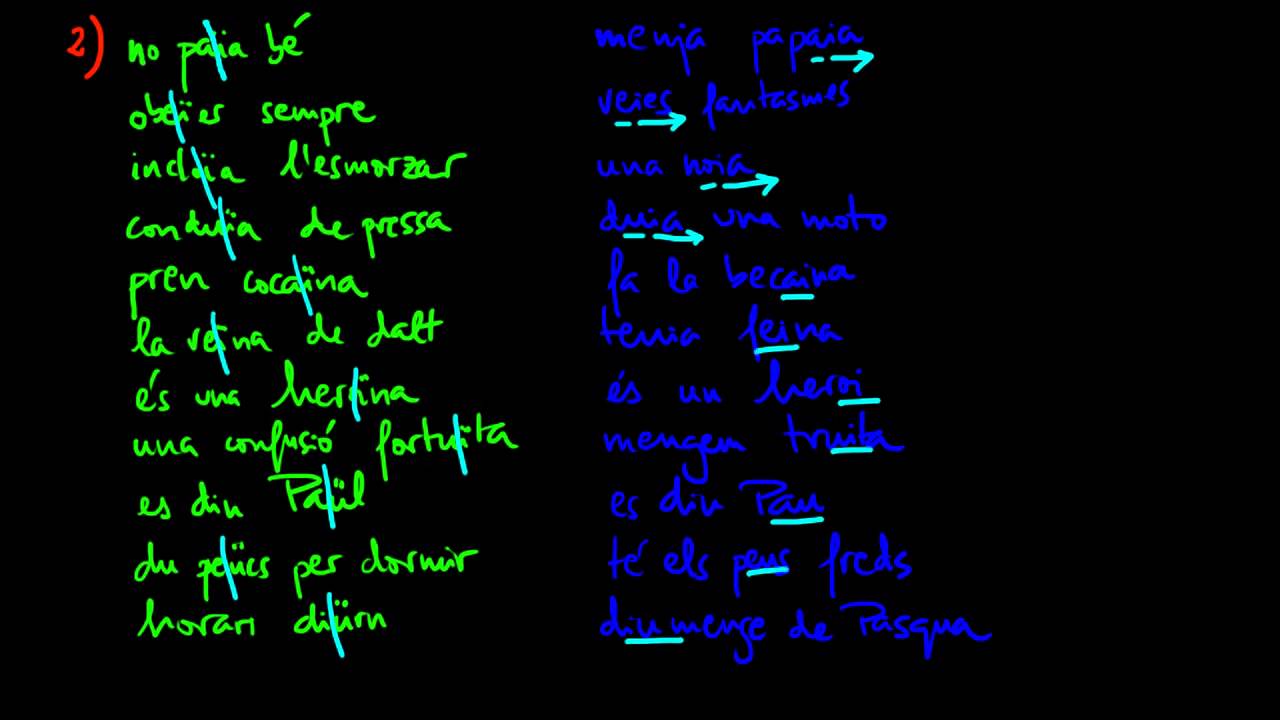 2) no païa bé menja papaia
obeïes sempre veies fantasmes
incloïa l'esmorzar una noia
conduïa de pressa duia una moto
pren cocaïna fa la becaina
la reïna de dalt tenia feina
és una heroïna és un heroi
una confusió fortuïta mengem truita
es diu Paül es diu Pau
du peücs per dormir té els peus freds
horari diürn diumenge de Pasqua